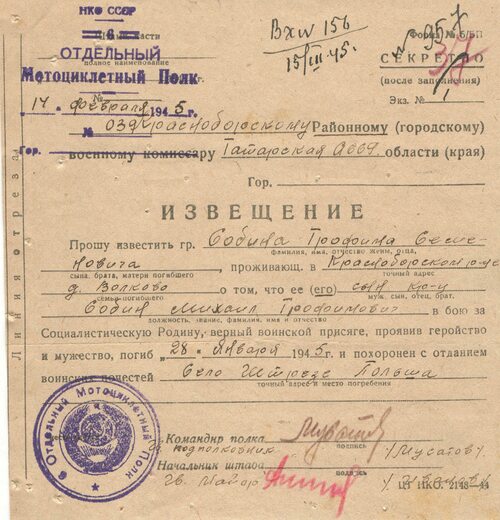 НКО СССР
Вх № 156
15/III 45.
Форма № 6/БП
6
ОТДЕЛЬНЫЙ
полное наименование
СЕКРЕТНО
Мотоциклетный Полк
(после заполнения)
№
Экз. № 1
14 " февраля 1945 г.
№ 039 Красноборскому Районному (городскому)
Гор. военному комиссару Татарская АССР области (края)
Гор.
ИЗВЕЩЕНИЕ
Прошу известить гр. Собина Трофима Семе-
фамилия, имя, отчество жены, отца,
новича, проживающ. в Красноборском р-не
сына, брата, матери погибшего
точный адрес
д. Волково о том, что ее (его) сын кр-ц
семьи погибшего
муж, сын, отец, брат.
Собин Михаил Трофимович в бою за
должность, звание, фамилия, имя и отчество
Социалистическую Родину, верный воинской присяге, проявив геройство
и мужество, погиб " 28 " января 1945 г. и похоронен с отданием
воинских почестей Село Польша
точный адрес и место погребения
Линия отреза
6 Отдельный Мотоциклетный Полк
Командир полка
подполковник
подпись
/Мусатов/.
Начальник штаба
Гв. Майор
подпись
ЦТ НКО. 2148—44